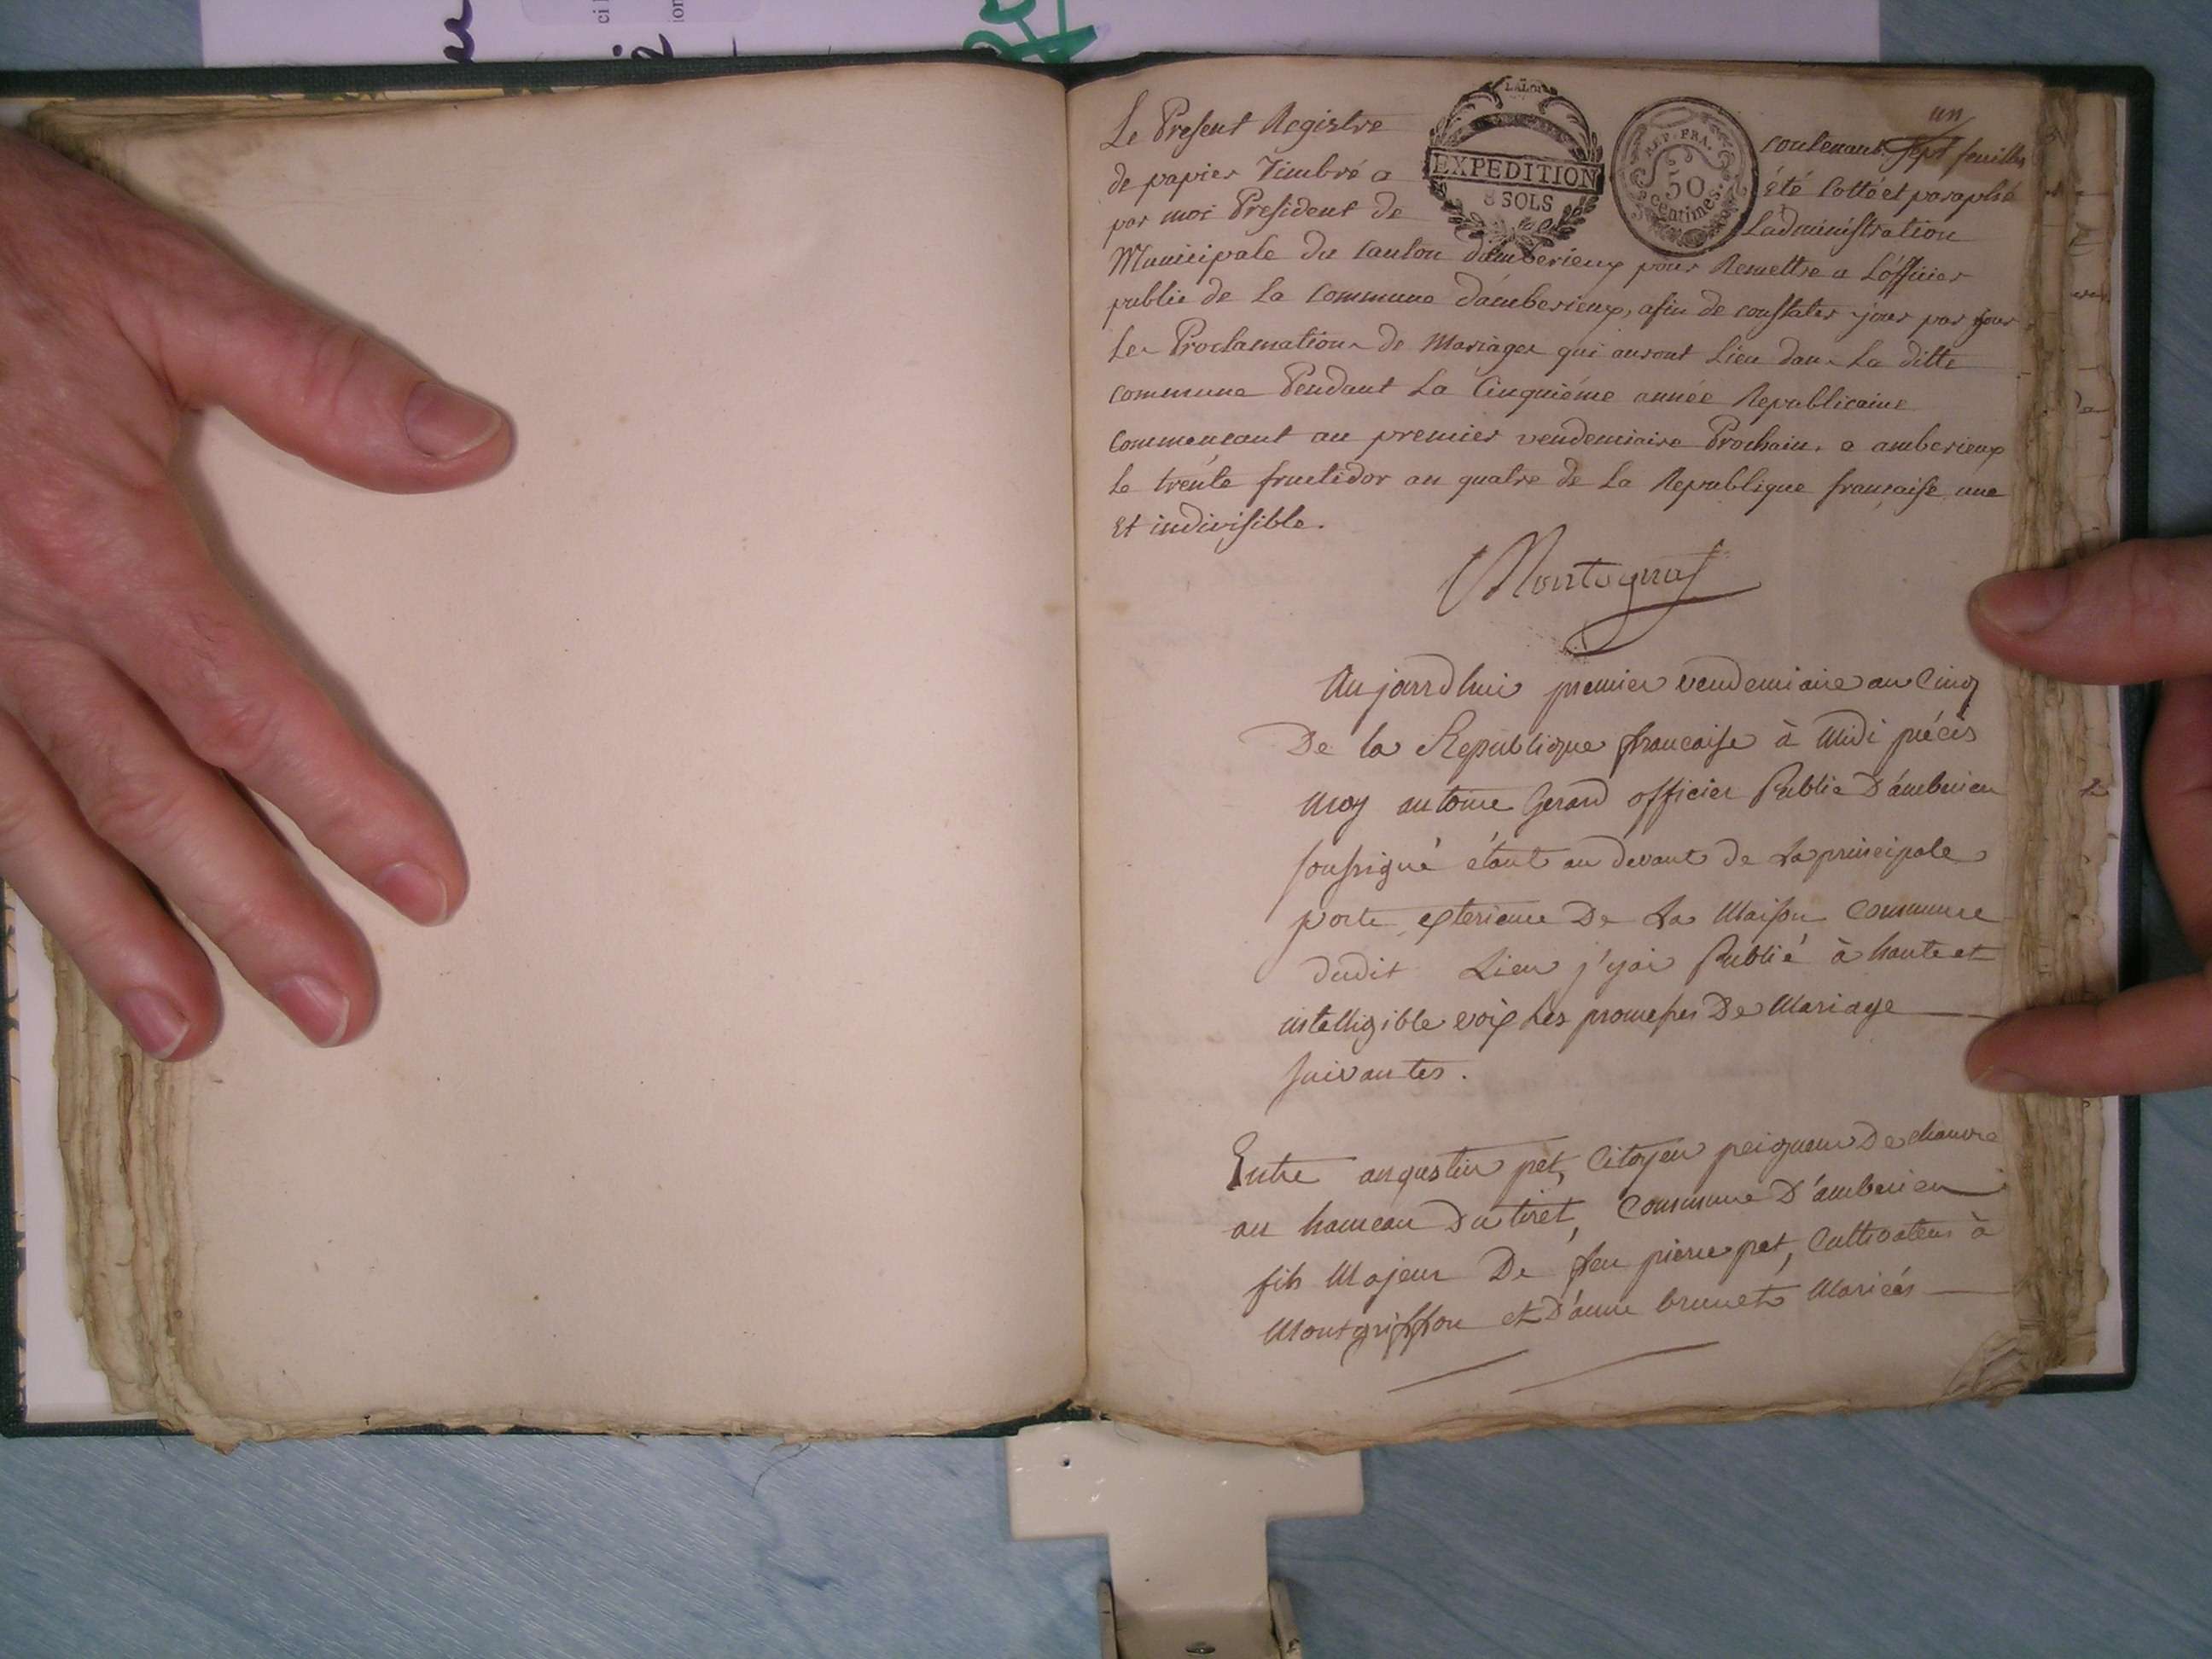 un
Le Present Registre contenant sept feuilles
de papier Timbré a été Cotté et paraphé
par moi President de Ladministration
LA LOI
EXPEDITION
8 SOLS
REP. FRA.
50
centimes.
Municipale du Canton d'amberieux pour Remettre a Lofficier
public de La Commune d'amberieux, afin de constater jour par jour
Les Proclamations de Mariages qui auront Lieu dans La ditte
commune Pendant La Cinquiéme année Republicaine
Commencant au premier vendemiaire Prochain. a amberieux
le trente fructidor an quatre de La Republique française une
Et indivisible.
Aujourdhui premier vendemiaire an Cinq
De la Republique francaise à Midi précis
Moy antoine Gerard officier Public D'amberieu
soussigné étant au devant de La principale
porte exterieure De La Maison Commune
dudit Lieu j'yai Publié à haute et
intelligible voix Les promesses De Mariage
suivantes.
Entre augustin pet, Citoyen peigneur De chanvre
au hameau Du tiret, Commune D'amberieu
fils Majeur De feu pierre pet, Cultivateur à
Montgriffon et D'anne brunet Mariés